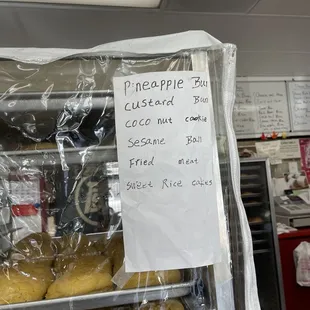 Pineapple Bun
custard Bun
coconut cookie
Sesame Ball
Fried meat
Sweet Rice cakes